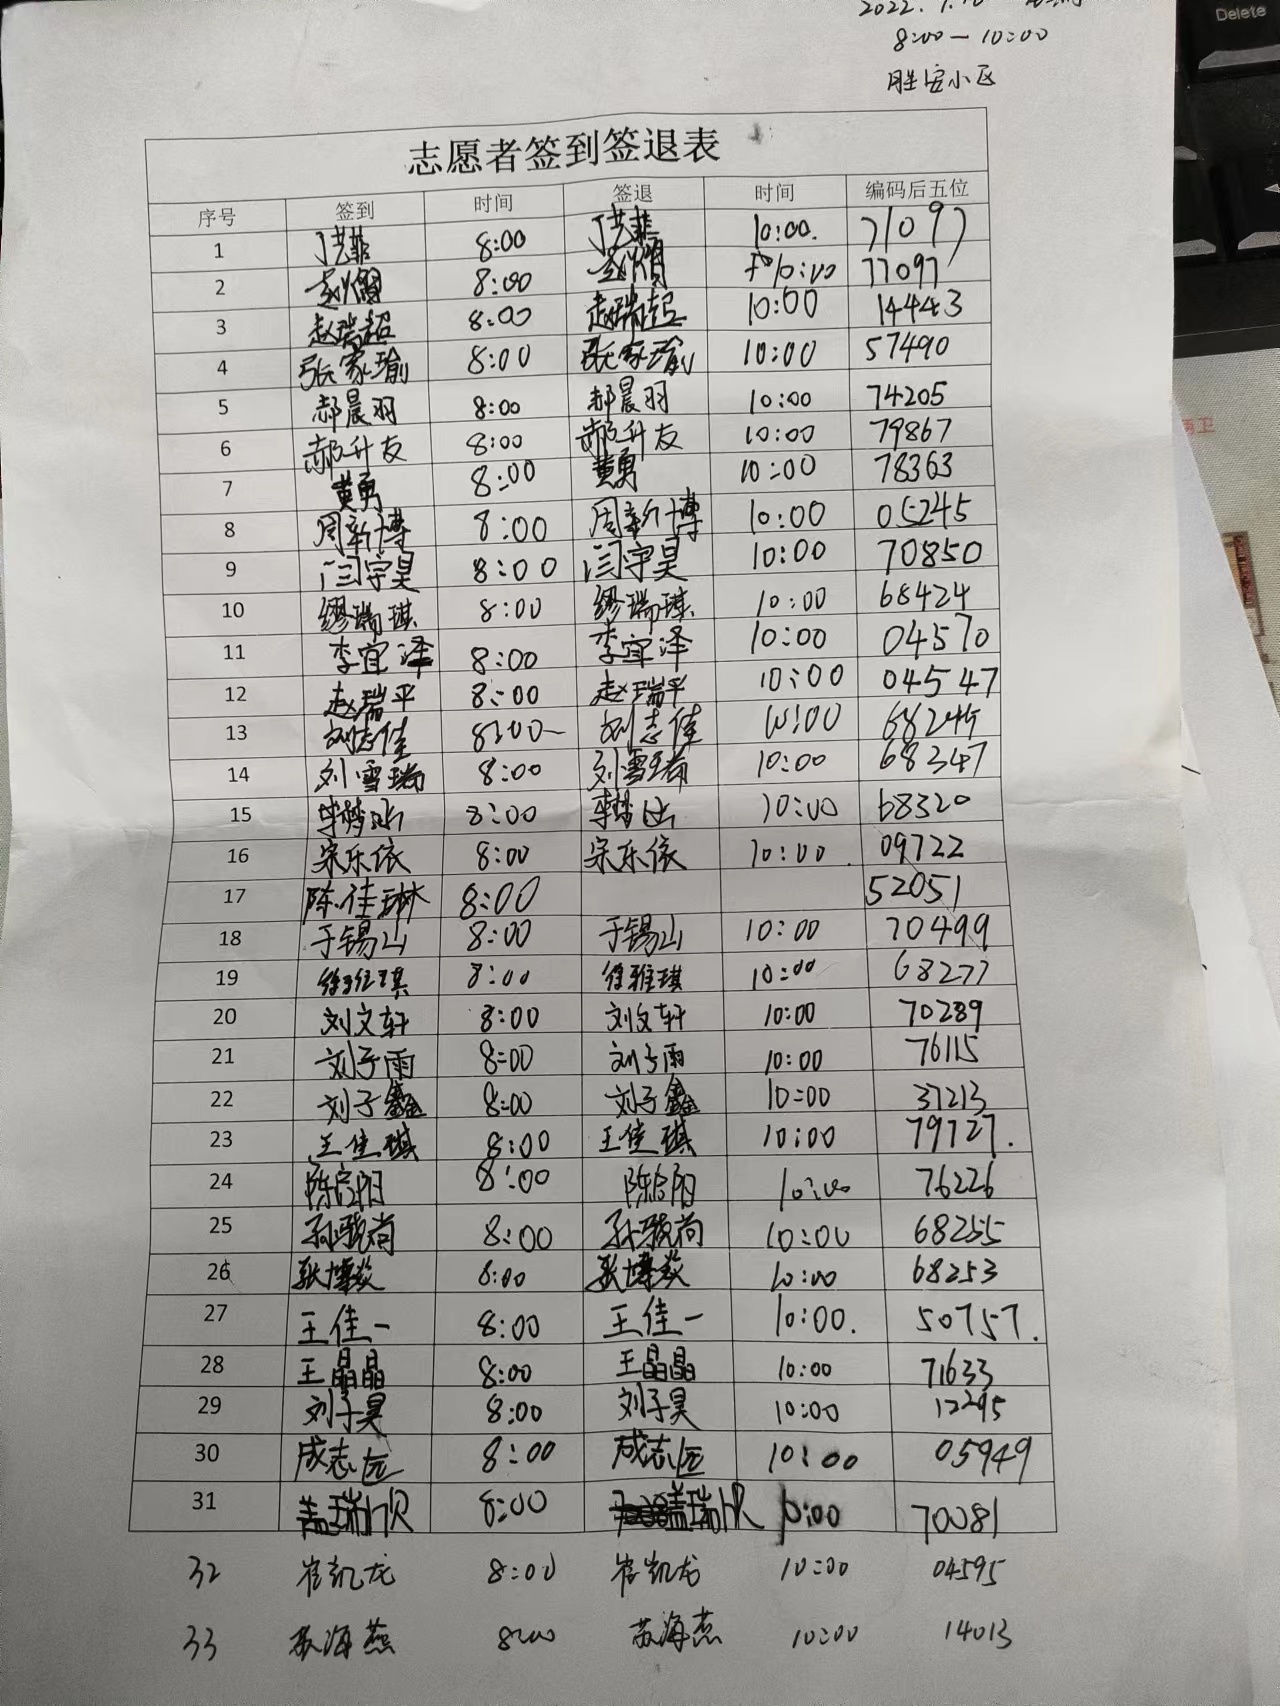 2022.
8:00—10:00
胜安小区
Delete
志愿者签到签退表
序号 签到 时间 签退 时间 编码后五位
1 丁艺菲 8:00 丁艺菲 10:00. 71097
2 8:00 10:00 77097
3 赵瑞超 8:00 赵瑞超 10:00 14443
4 张家瑜 8:00 张家瑜 10:00 57490
5 郝晨羽 8:00 郝晨羽 10:00 74205
6 郝升友 8:00 郝升友 10:00 79867
7 黄勇 8:00 黄勇 10:00 78363
8 周新博 8:00 周新博 10:00 05245
9 闫宇昊 8:00 闫宇昊 10:00 70850
10 缪瑞琪 8:00 缪瑞琪 10:00 68424
11 李宜泽 8:00 李宜泽 10:00 04570
12 赵瑞平 8:00 赵瑞平 10:00 04547
13 刘志佳 8:00 刘志佳 10:00
14 刘雪瑞 8:00 刘雪瑞 10:00 68347
15 8:00 10:00 68320
16 宋乐依 8:00 宋乐依 10:00 09722
17 陈佳琳 8:00 52051
18 于锡山 8:00 于锡山 10:00 70499
19 徐雅琪 8:00 徐雅琪 10:00 68277
20 刘文轩 8:00 刘文轩 10:00 70289
21 刘子雨 8:00 刘子雨 10:00 76115
22 刘子鑫 8:00 刘子鑫 10:00 37213
23 王佳琪 8:00 王佳琪 10:00 79727.
24 8:00 10:00 76226
25 孙骏尚 8:00 孙骏尚 10:00 68255
26 张博焱 8:00 张博焱 10:00 68253
27 王佳一 8:00 王佳一 10:00. 50757.
28 王晶晶 8:00 王晶晶 10:00 71633
29 刘子昊 8:00 刘子昊 10:00 12295
30 成志远 8:00 成志远 10:00 05949
31 8:00 10:00 70081
32 崔凯龙 8:00 崔凯龙 10:00 04595
33 苏海燕 8:00 苏海燕 10:00 14013